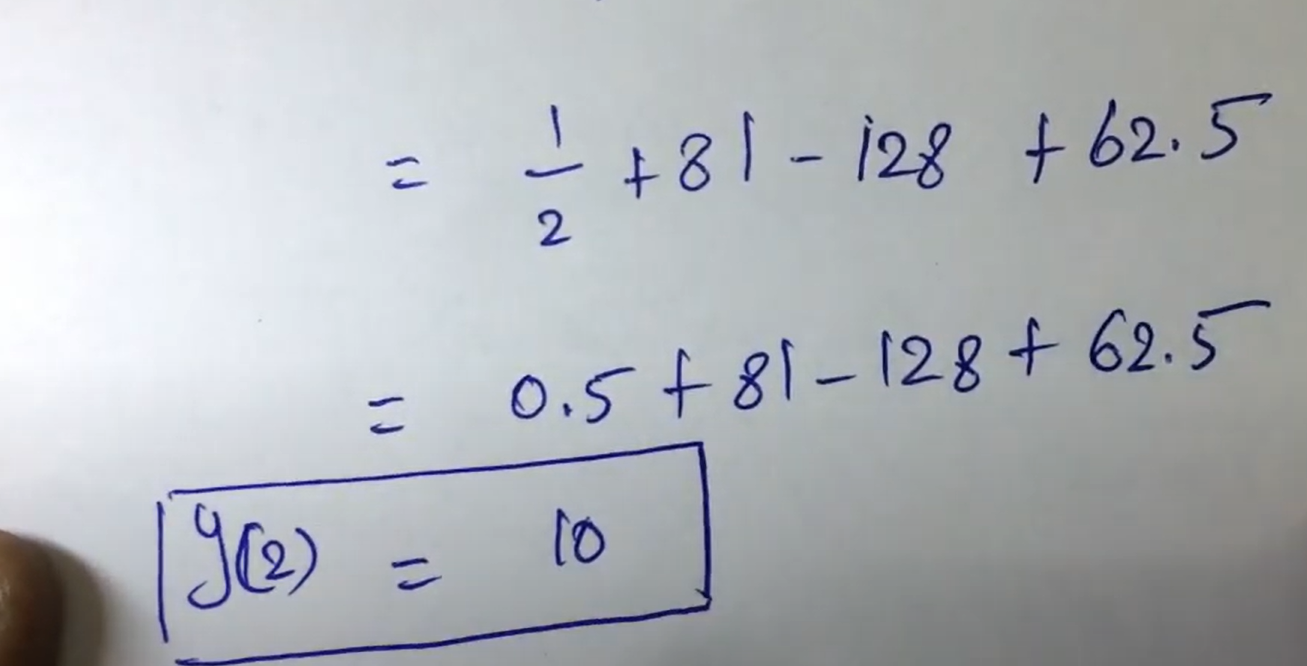 = 1/2 + 81 - 128 + 62.5
= 0.5 + 81 - 128 + 62.5
y(2) = 10